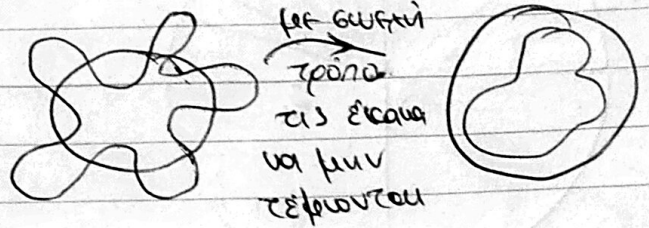 με συνεχή
τρόπο
τις έκανα
να μην
τέμνονται